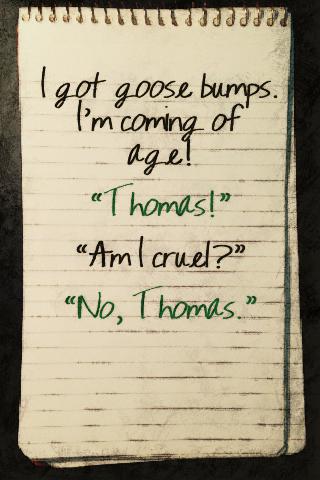 I got goose bumps.
I'm coming of
age!
"Thomas!"
"Am I cruel?"
"No, Thomas."